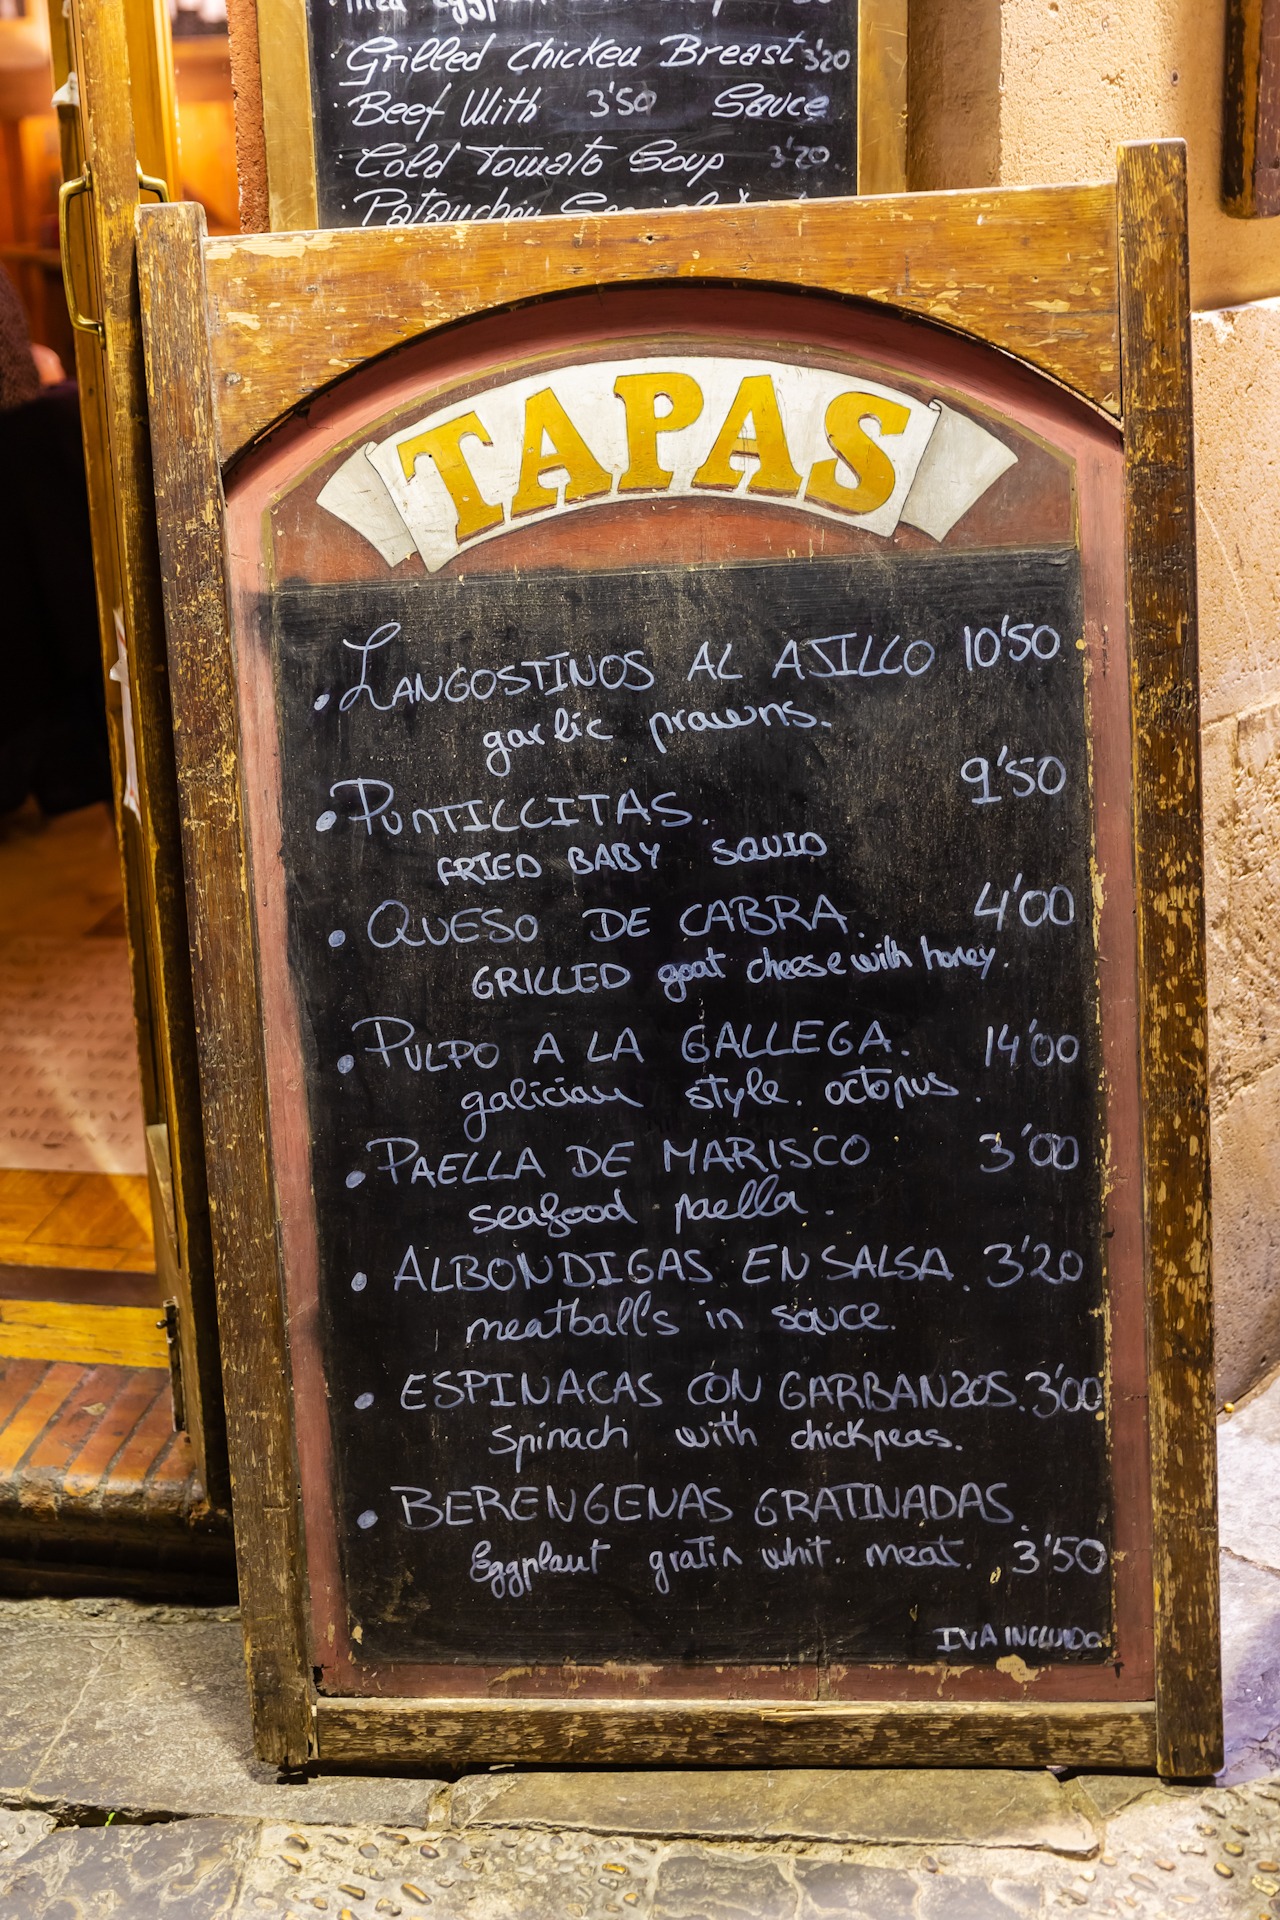 Grilled Chicken Breast 3'20
Beef With 3'50 Sauce
Cold Tomato Soup 3'20
TAPAS
LANGOSTINOS AL AJILLO 10'50
garlic prawns.
PUNTILLITAS. 9'50
FRIED BABY SQUID
QUESO DE CABRA. 4'00
GRILLED goat cheese with honey.
PULPO A LA GALLEGA. 14'00
galician style. octopus.
PAELLA DE MARISCO 3'00
seafood paella.
ALBONDIGAS EN SALSA. 3'20
meatballs in sauce.
ESPINACAS CON GARBANZOS. 3'00
spinach with chickpeas.
BERENGENAS GRATINADAS.
Eggplant gratin whit. meat. 3'50
IVA INCLUIDO